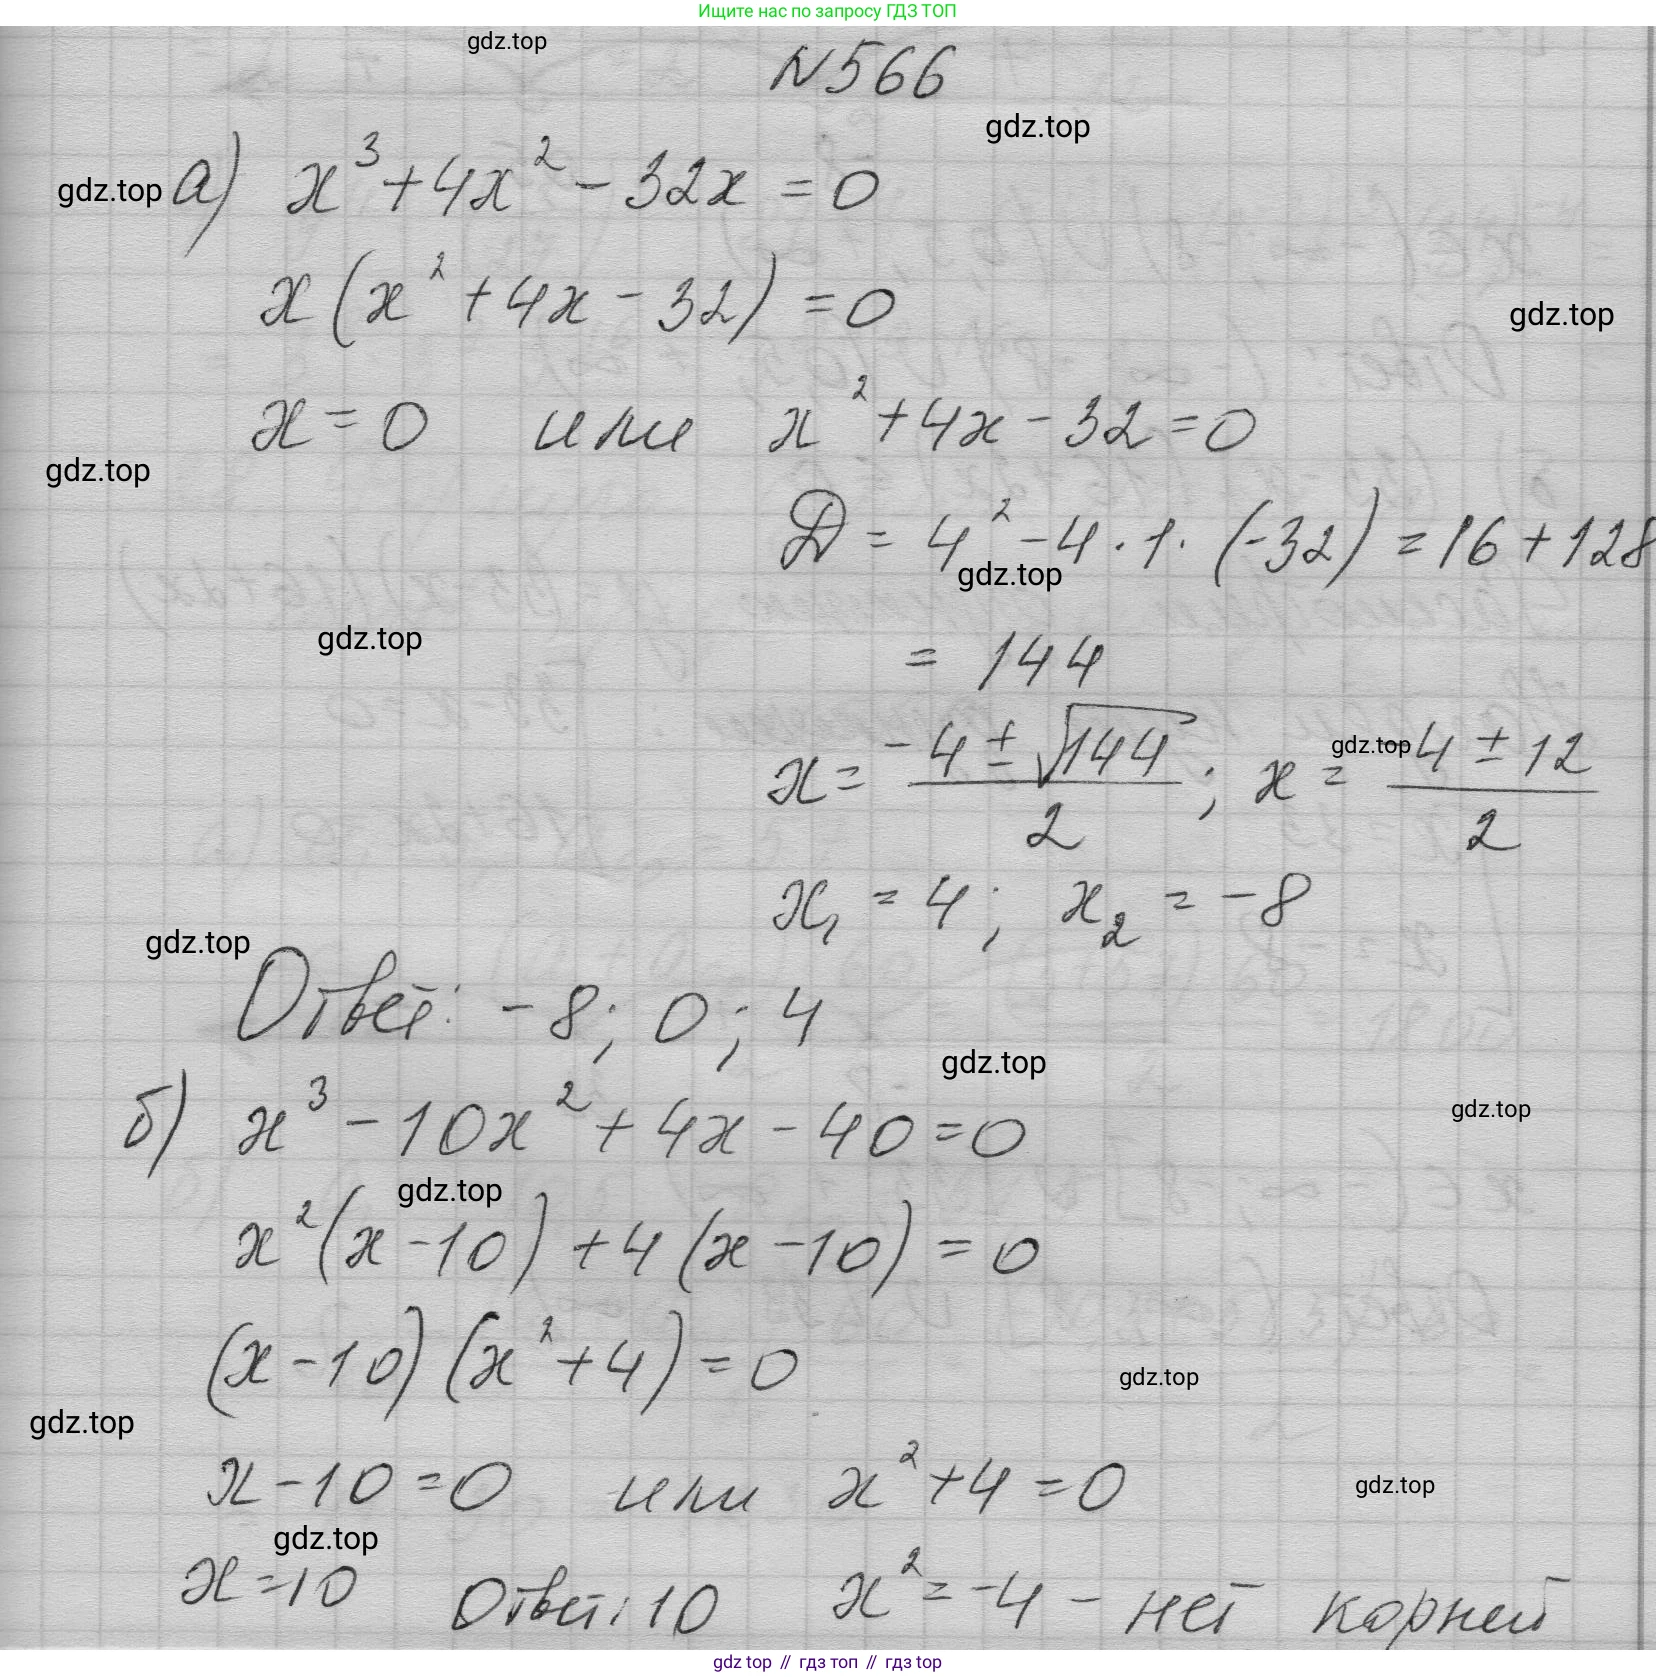 Ищите нас по запросу ГДЗ ТОП
gdz.top
N566
gdz.top
gdz.top а) x³+4x²-32x=0
x(x²+4x-32)=0
gdz.top
x=0 или x²+4x-32=0
gdz.top
Д=4²-4·1·(-32)=16+128
gdz.top
gdz.top
=144
x=(-4±√144)/2; x=(-4±12)/2
gdz.top
x₁=4; x₂=-8
gdz.top
Ответ: -8; 0; 4
gdz.top
gdz.top
б) x³-10x²+4x-40=0
gdz.top
x²(x-10)+4(x-10)=0
(x-10)(x²+4)=0
gdz.top
gdz.top
x-10=0 или x²+4=0
gdz.top
gdz.top
x=10 Ответ: 10 x²=-4 - нет корней
gdz top // гдз топ // гдз top